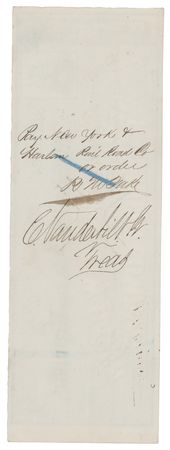 Pay New York &
Harlem Rail Road Co
or order
C Vanderbilt Jr.
Treas